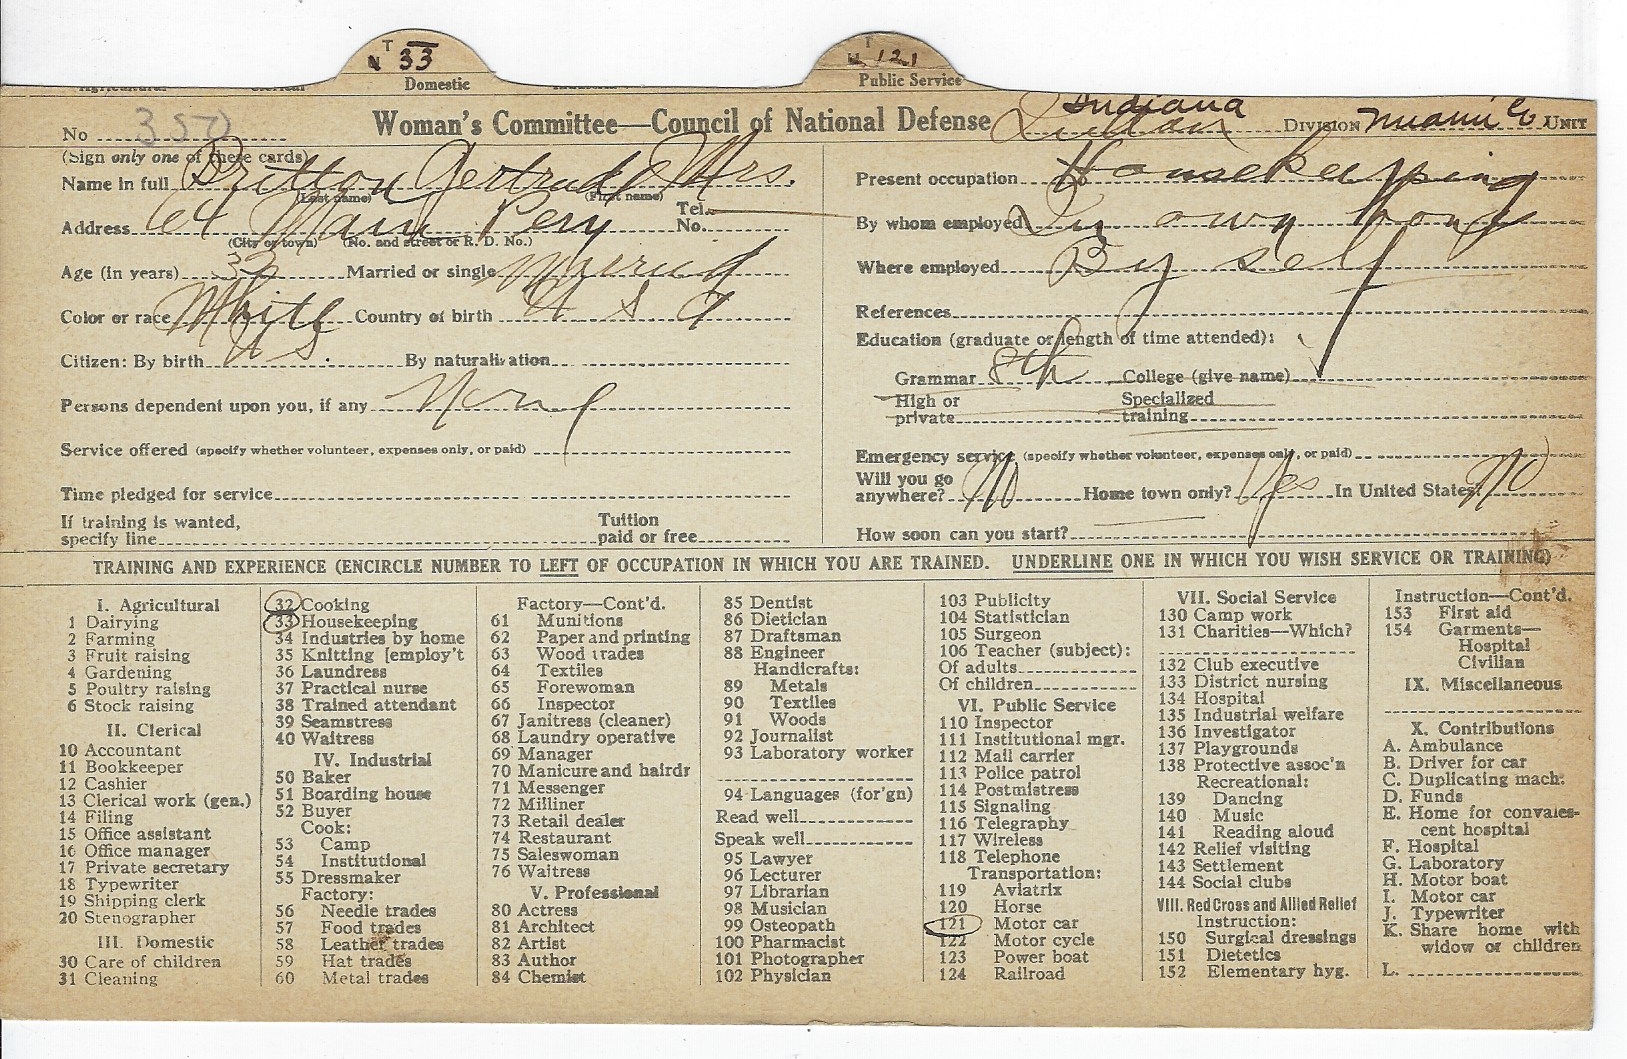 T
N 33
Domestic
T
121
Public Service
No 350
Woman's Committee—Council of National Defense Indiana DIVISION Miami Co UNIT
(Sign only one of these cards)
Name in full Britton Gertrude Mrs.
(Last name) (First name)
Address 64 Main Pery Tel. No.
(City or town) (No. and street or R. D. No.)
Age (in years) 33 Married or single Married
Color or race White Country of birth U S A
Citizen: By birth U S. By naturalization
Persons dependent upon you, if any None
Service offered (specify whether volunteer, expenses only, or paid)
Time pledged for service
If training is wanted, specify line Tuition paid or free
Present occupation Housekeepping
By whom employed In own home
Where employed By self
References
Education (graduate or length of time attended):
Grammar 8th College (give name)
High or private Specialized training
Emergency service (specify whether volunteer, expenses only, or paid)
Will you go anywhere? No Home town only? Yes In United States? No
How soon can you start?
TRAINING AND EXPERIENCE (ENCIRCLE NUMBER TO LEFT OF OCCUPATION IN WHICH YOU ARE TRAINED. UNDERLINE ONE IN WHICH YOU WISH SERVICE OR TRAINING)
I. Agricultural
1 Dairying
2 Farming
3 Fruit raising
4 Gardening
5 Poultry raising
6 Stock raising
II. Clerical
10 Accountant
11 Bookkeeper
12 Cashier
13 Clerical work (gen.)
14 Filing
15 Office assistant
16 Office manager
17 Private secretary
18 Typewriter
19 Shipping clerk
20 Stenographer
III. Domestic
30 Care of children
31 Cleaning
32 Cooking
33 Housekeeping
34 Industries by home
35 Knitting [employ't
36 Laundress
37 Practical nurse
38 Trained attendant
39 Seamstress
40 Waitress
IV. Industrial
50 Baker
51 Boarding house
52 Buyer
Cook:
53 Camp
54 Institutional
55 Dressmaker
Factory:
56 Needle trades
57 Food trades
58 Leather trades
59 Hat trades
60 Metal trades
Factory—Cont'd.
61 Munitions
62 Paper and printing
63 Wood trades
64 Textiles
65 Forewoman
66 Inspector
67 Janitress (cleaner)
68 Laundry operative
69 Manager
70 Manicure and hairdr
71 Messenger
72 Milliner
73 Retail dealer
74 Restaurant
75 Saleswoman
76 Waitress
V. Professional
80 Actress
81 Architect
82 Artist
83 Author
84 Chemist
85 Dentist
86 Dietician
87 Draftsman
88 Engineer
Handicrafts:
89 Metals
90 Textiles
91 Woods
92 Journalist
93 Laboratory worker
94 Languages (for'gn)
Read well
Speak well
95 Lawyer
96 Lecturer
97 Librarian
98 Musician
99 Osteopath
100 Pharmacist
101 Photographer
102 Physician
103 Publicity
104 Statistician
105 Surgeon
106 Teacher (subject):
Of adults
Of children
VI. Public Service
110 Inspector
111 Institutional mgr.
112 Mail carrier
113 Police patrol
114 Postmistress
115 Signaling
116 Telegraphy
117 Wireless
118 Telephone
Transportation:
119 Aviatrix
120 Horse
121 Motor car
122 Motor cycle
123 Power boat
124 Railroad
VII. Social Service
130 Camp work
131 Charities—Which?
132 Club executive
133 District nursing
134 Hospital
135 Industrial welfare
136 Investigator
137 Playgrounds
138 Protective assoc'n
Recreational:
139 Dancing
140 Music
141 Reading aloud
142 Relief visiting
143 Settlement
144 Social clubs
VIII. Red Cross and Allied Relief
Instruction:
150 Surgical dressings
151 Dietetics
152 Elementary hyg.
Instruction—Cont'd.
153 First aid
154 Garments—
Hospital
Civilian
IX. Miscellaneous
X. Contributions
A. Ambulance
B. Driver for car
C. Duplicating mach:
D. Funds
E. Home for convales-
cent hospital
F. Hospital
G. Laboratory
H. Motor boat
I. Motor car
J. Typewriter
K. Share home with
widow or children
L.